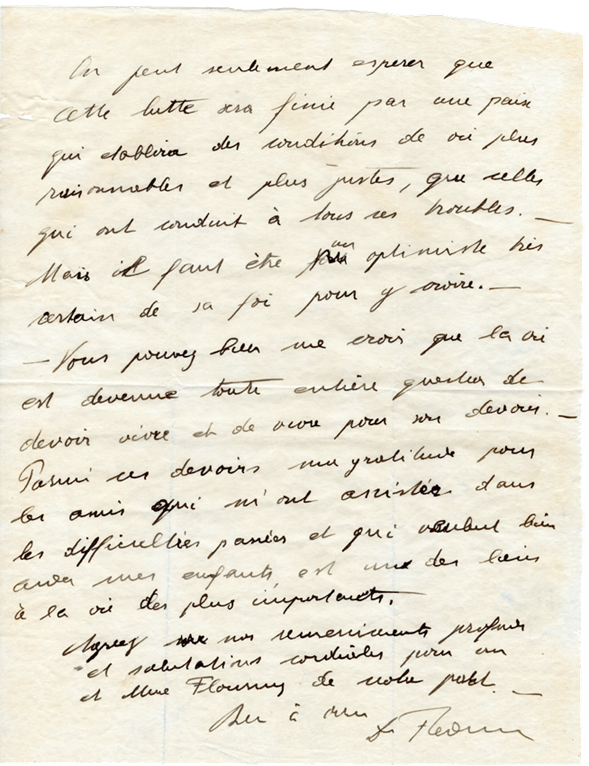 On peut seulement esperer que
cette lutte sera finie par une paix
qui etablira des conditions de vie plus
raisonnables et plus justes, que celles
qui ont conduit à tous ces troubles. —
Mais il faut être un optimiste très
certain de sa foi pour y croire. —
— Vous pouvez bien me croir que la vie
est devenue toute entière question de
devoir vivre et de vivre pour son devoir. —
Parmi ces devoirs ma gratitude pour
les amis qui m'ont assistée dans
les difficultées passées et qui veulent bien
aider mes enfants est un des liens
à la vie des plus importants.
Agreez nos remerciements profonds
et salutations cordiales pour
et Mme Flournoy de notre part. —
Bien à vous